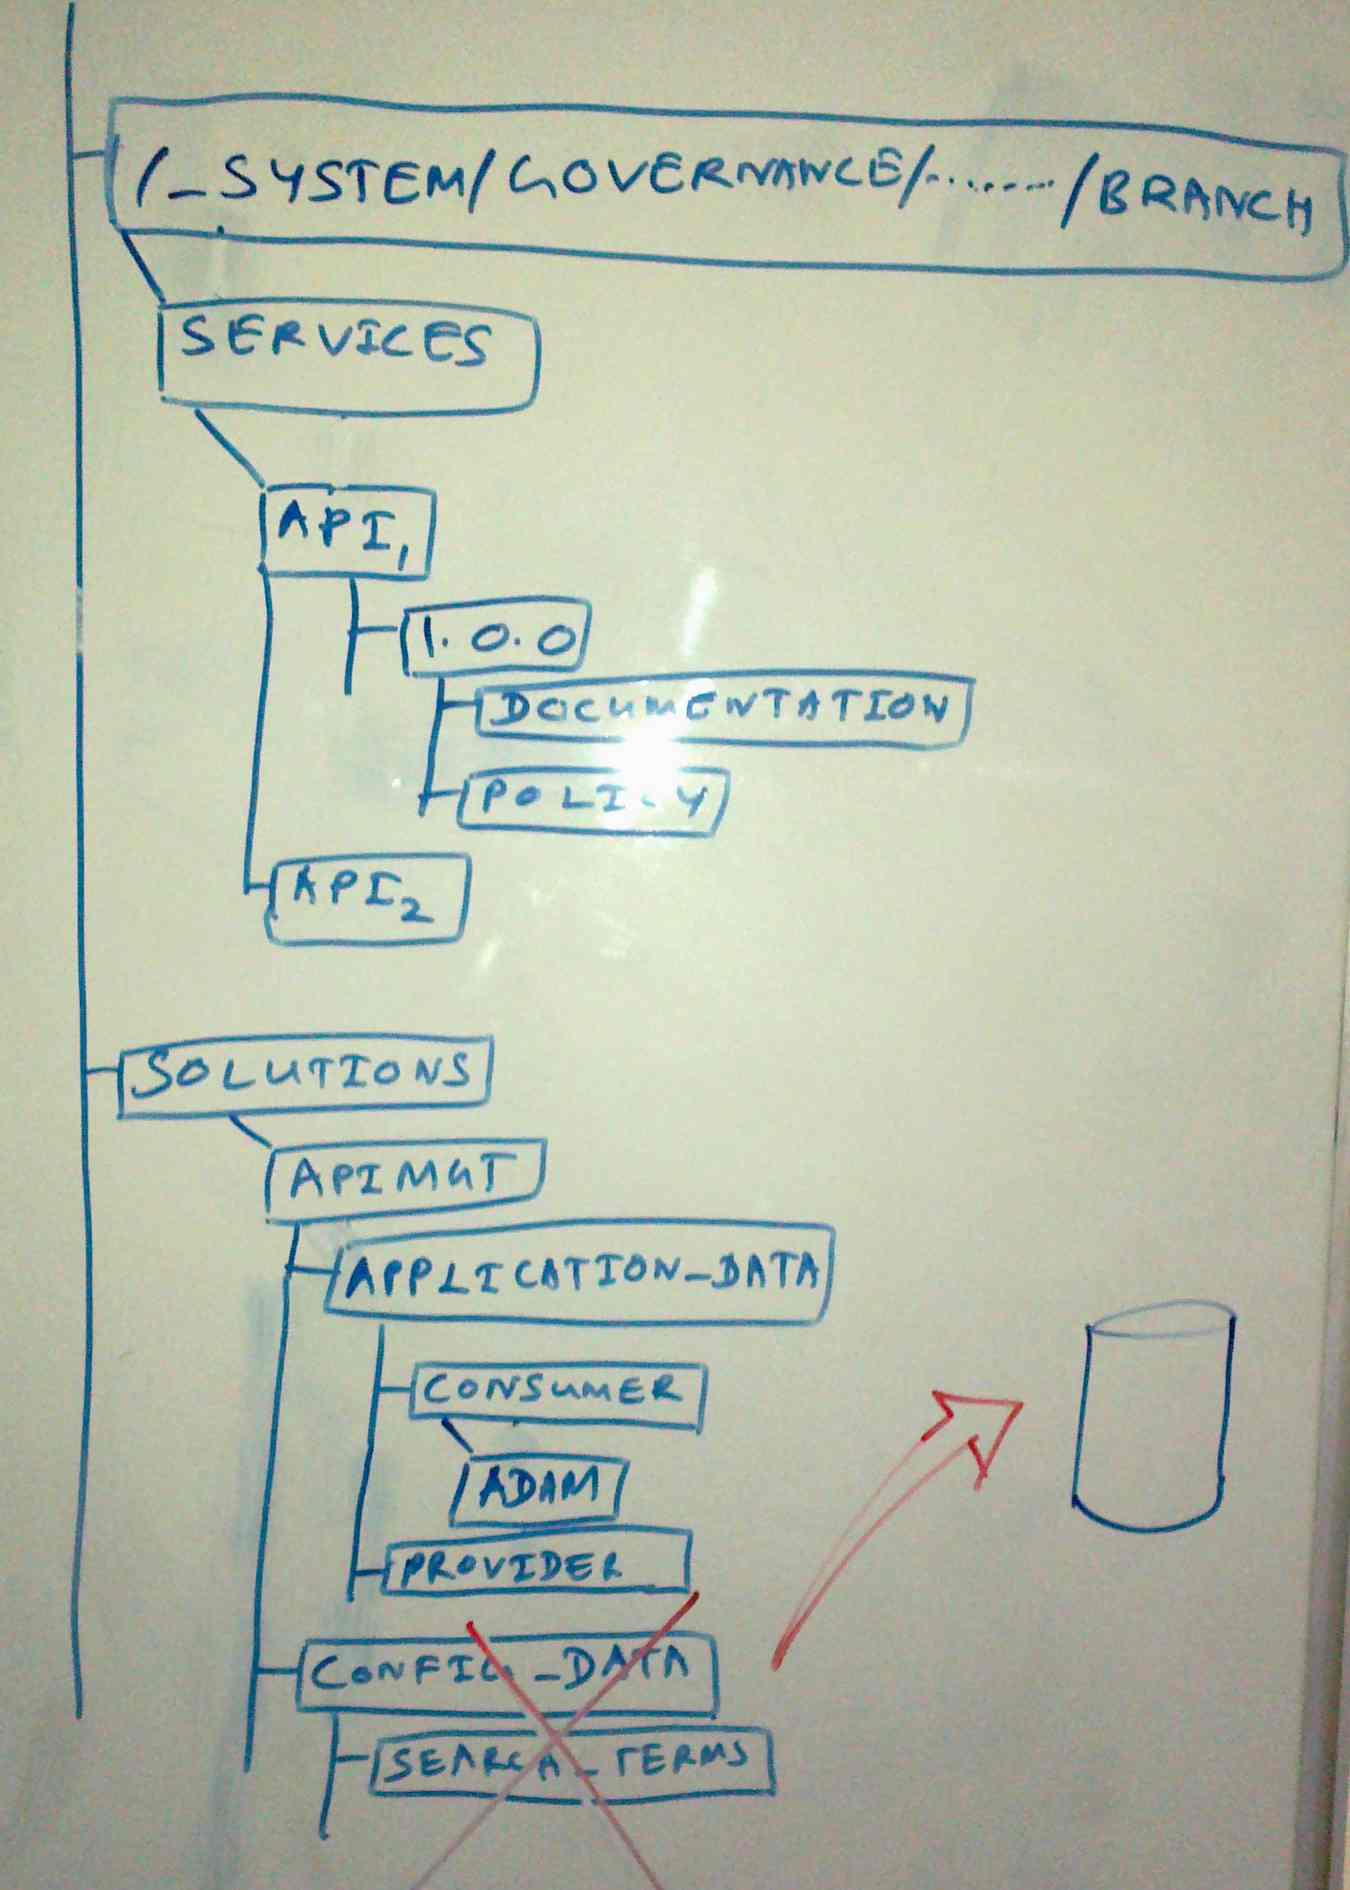 /_SYSTEM/GOVERNANCE/......../BRANCH
SERVICES
API1
1.0.0
DOCUMENTATION
POLICY
API2
SOLUTIONS
APIMGT
APPLICATION_DATA
CONSUMER
ADAM
PROVIDER
CONFIG_DATA
SEARCH_TERMS